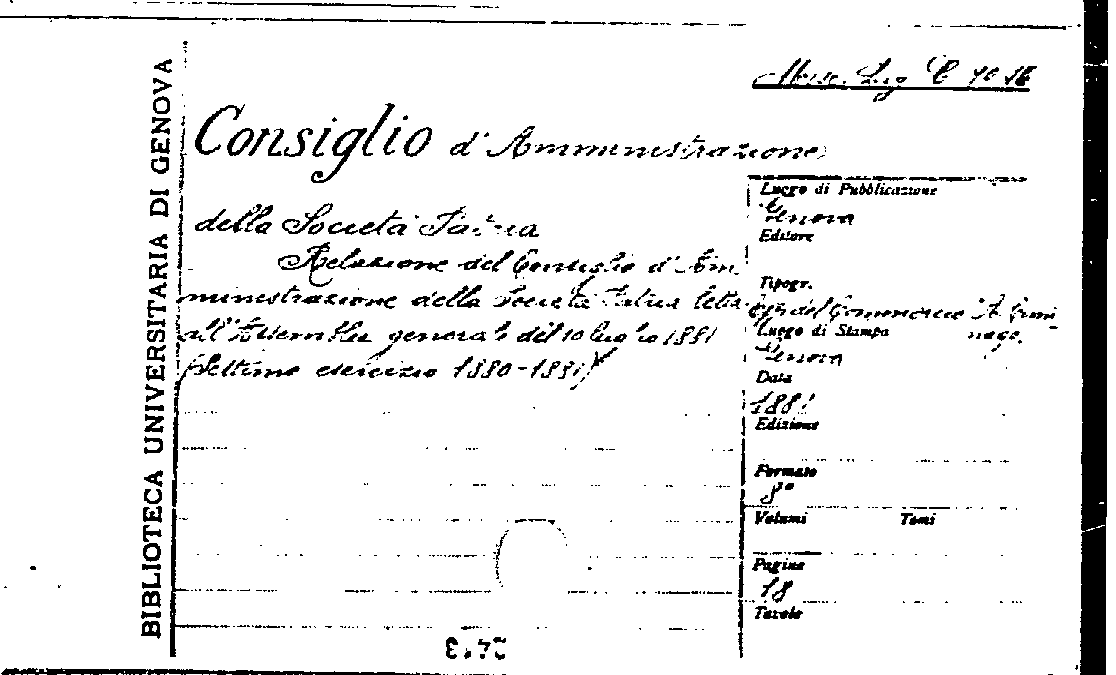 BIBLIOTECA UNIVERSITARIA DI GENOVA
Misc. Lig C 70 16
Consiglio d'Amministrazione
della Società Patria
Relazione del Consiglio d'Am
ministrazione della Società Patria letta
all'Assemblea generale del 10 luglio 1881
(Settimo esercizio 1880-1881)
Luogo di Pubblicazione
Genova
Editore
Tipogr.
del Commercio
Luogo di Stampa
Genova
Data
1881
Edizione
Formato
8°
Volumi Tomi
Pagine
18
Tavole